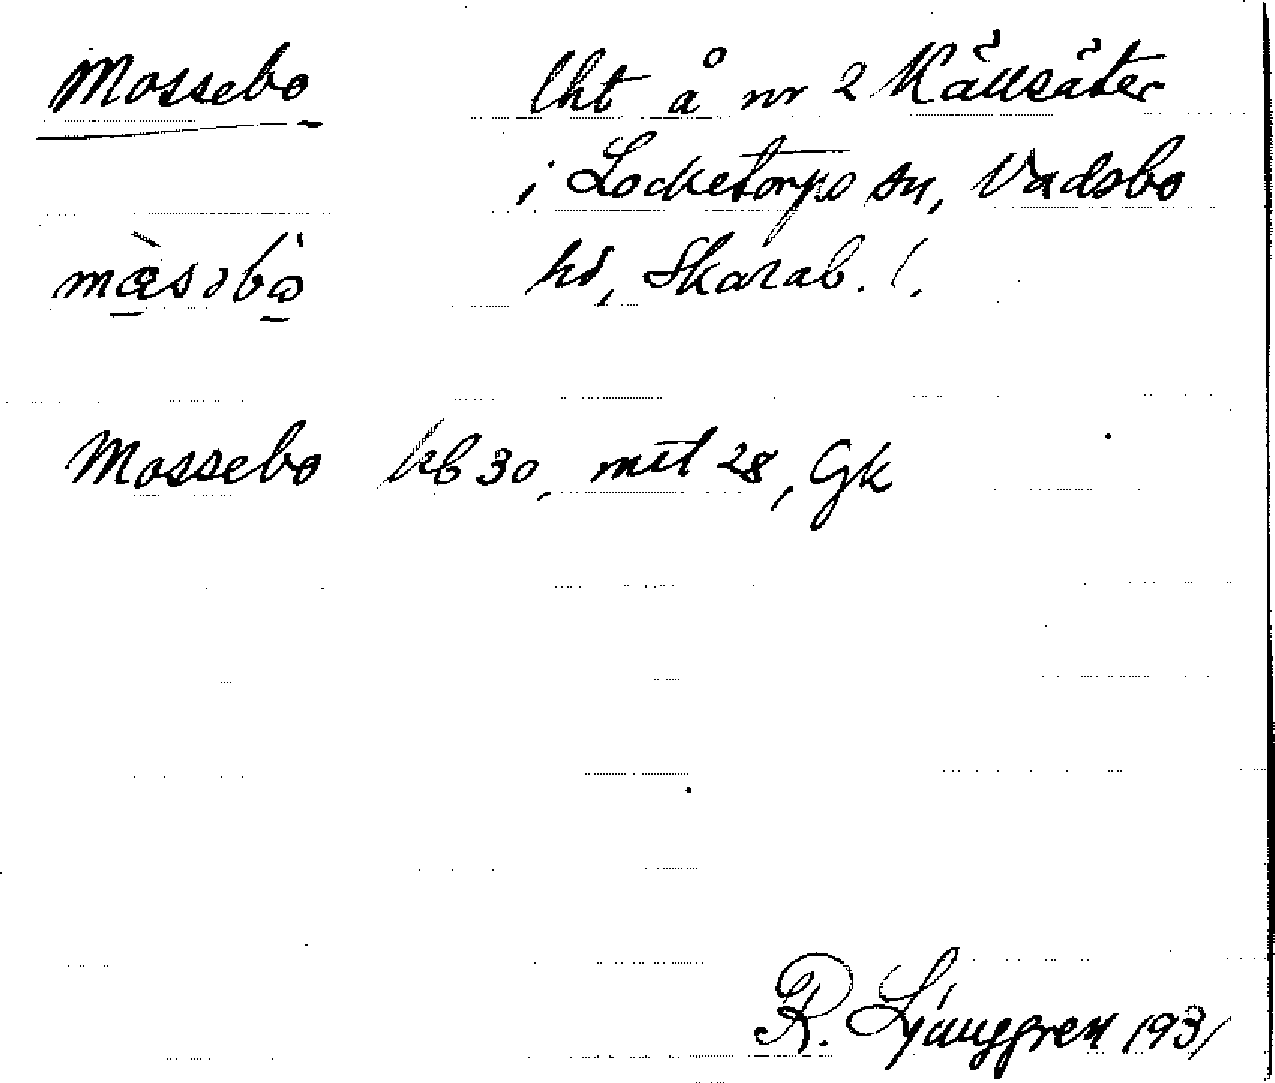 Mossebo lht å nr 2 Källsäter
i Locketorps sn, Vadsbo
mæ̀səbò hd, Skarab. l.
Mossebo kb 30, mtl 28, Gk
R. Ljunggren 1931